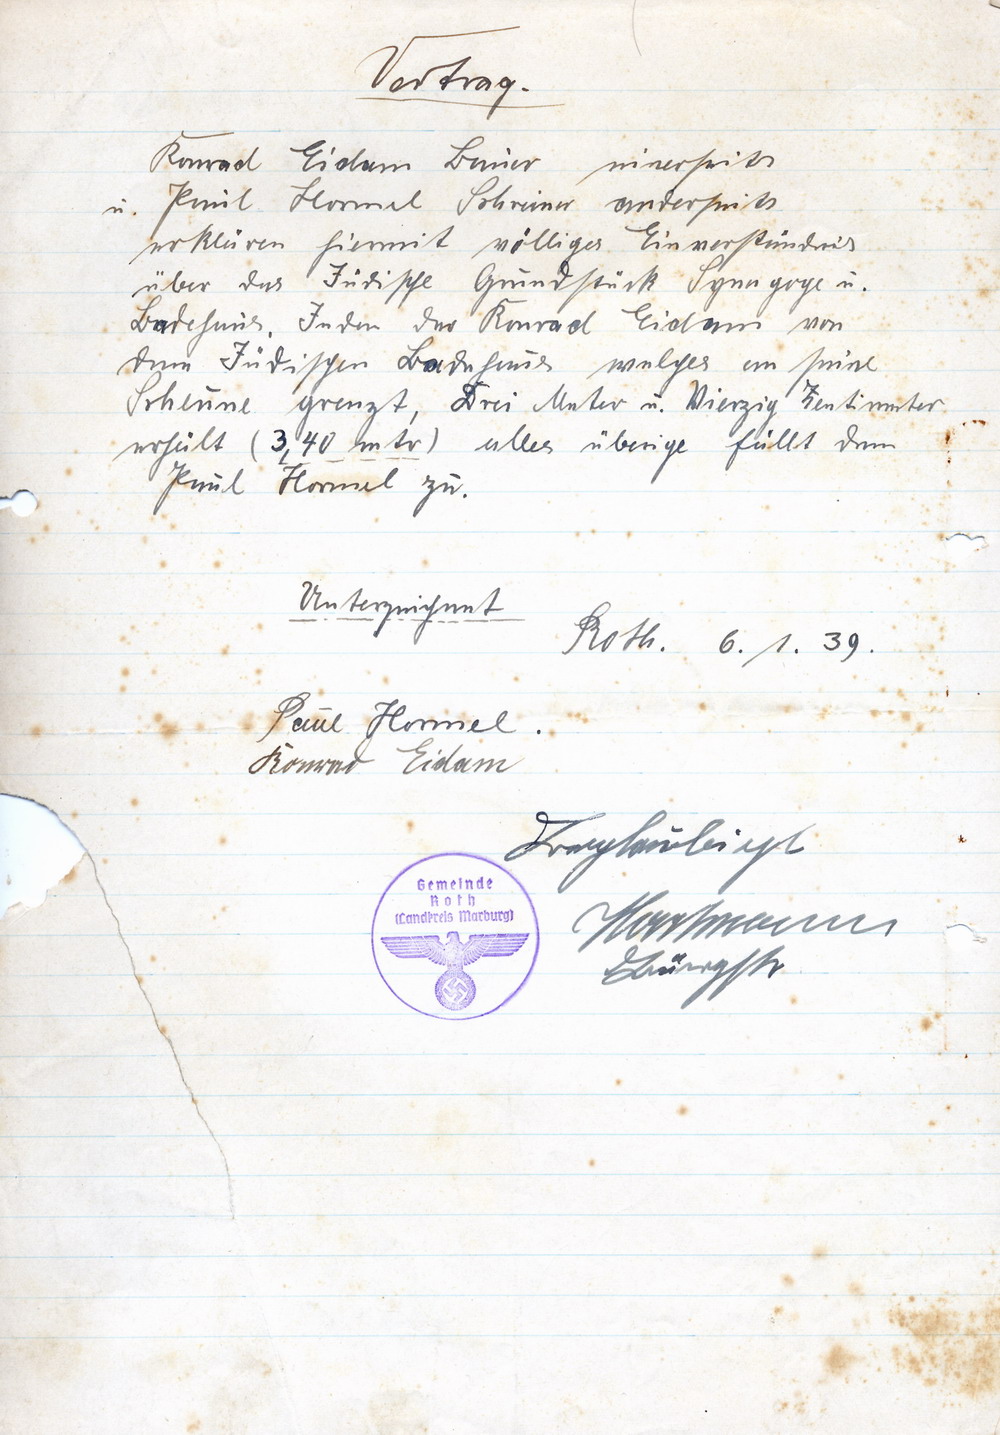 Vertrag.
Konrad Eidam Bauer einerseits
u. Paul Hormel Schreiner anderseits
erklären hiermit völliges Einverständnis
über das Jüdische Grundstück Synagoge u.
Badehaus. Indem der Konrad Eidam von
dem Jüdischen Badehaus welches an seine
Scheune grenzt, Drei Meter u. Vierzig Zentimeter
erhält (3,40 mtr) alles übrige fällt dem
Paul Hormel zu.
Unterzeichnet
Roth. 6. 1. 39.
Paul Hormel.
Konrad Eidam
Beglaubigt
Gemeinde
Roth
(Landkreis Marburg)
Hartmann
Bürgstr